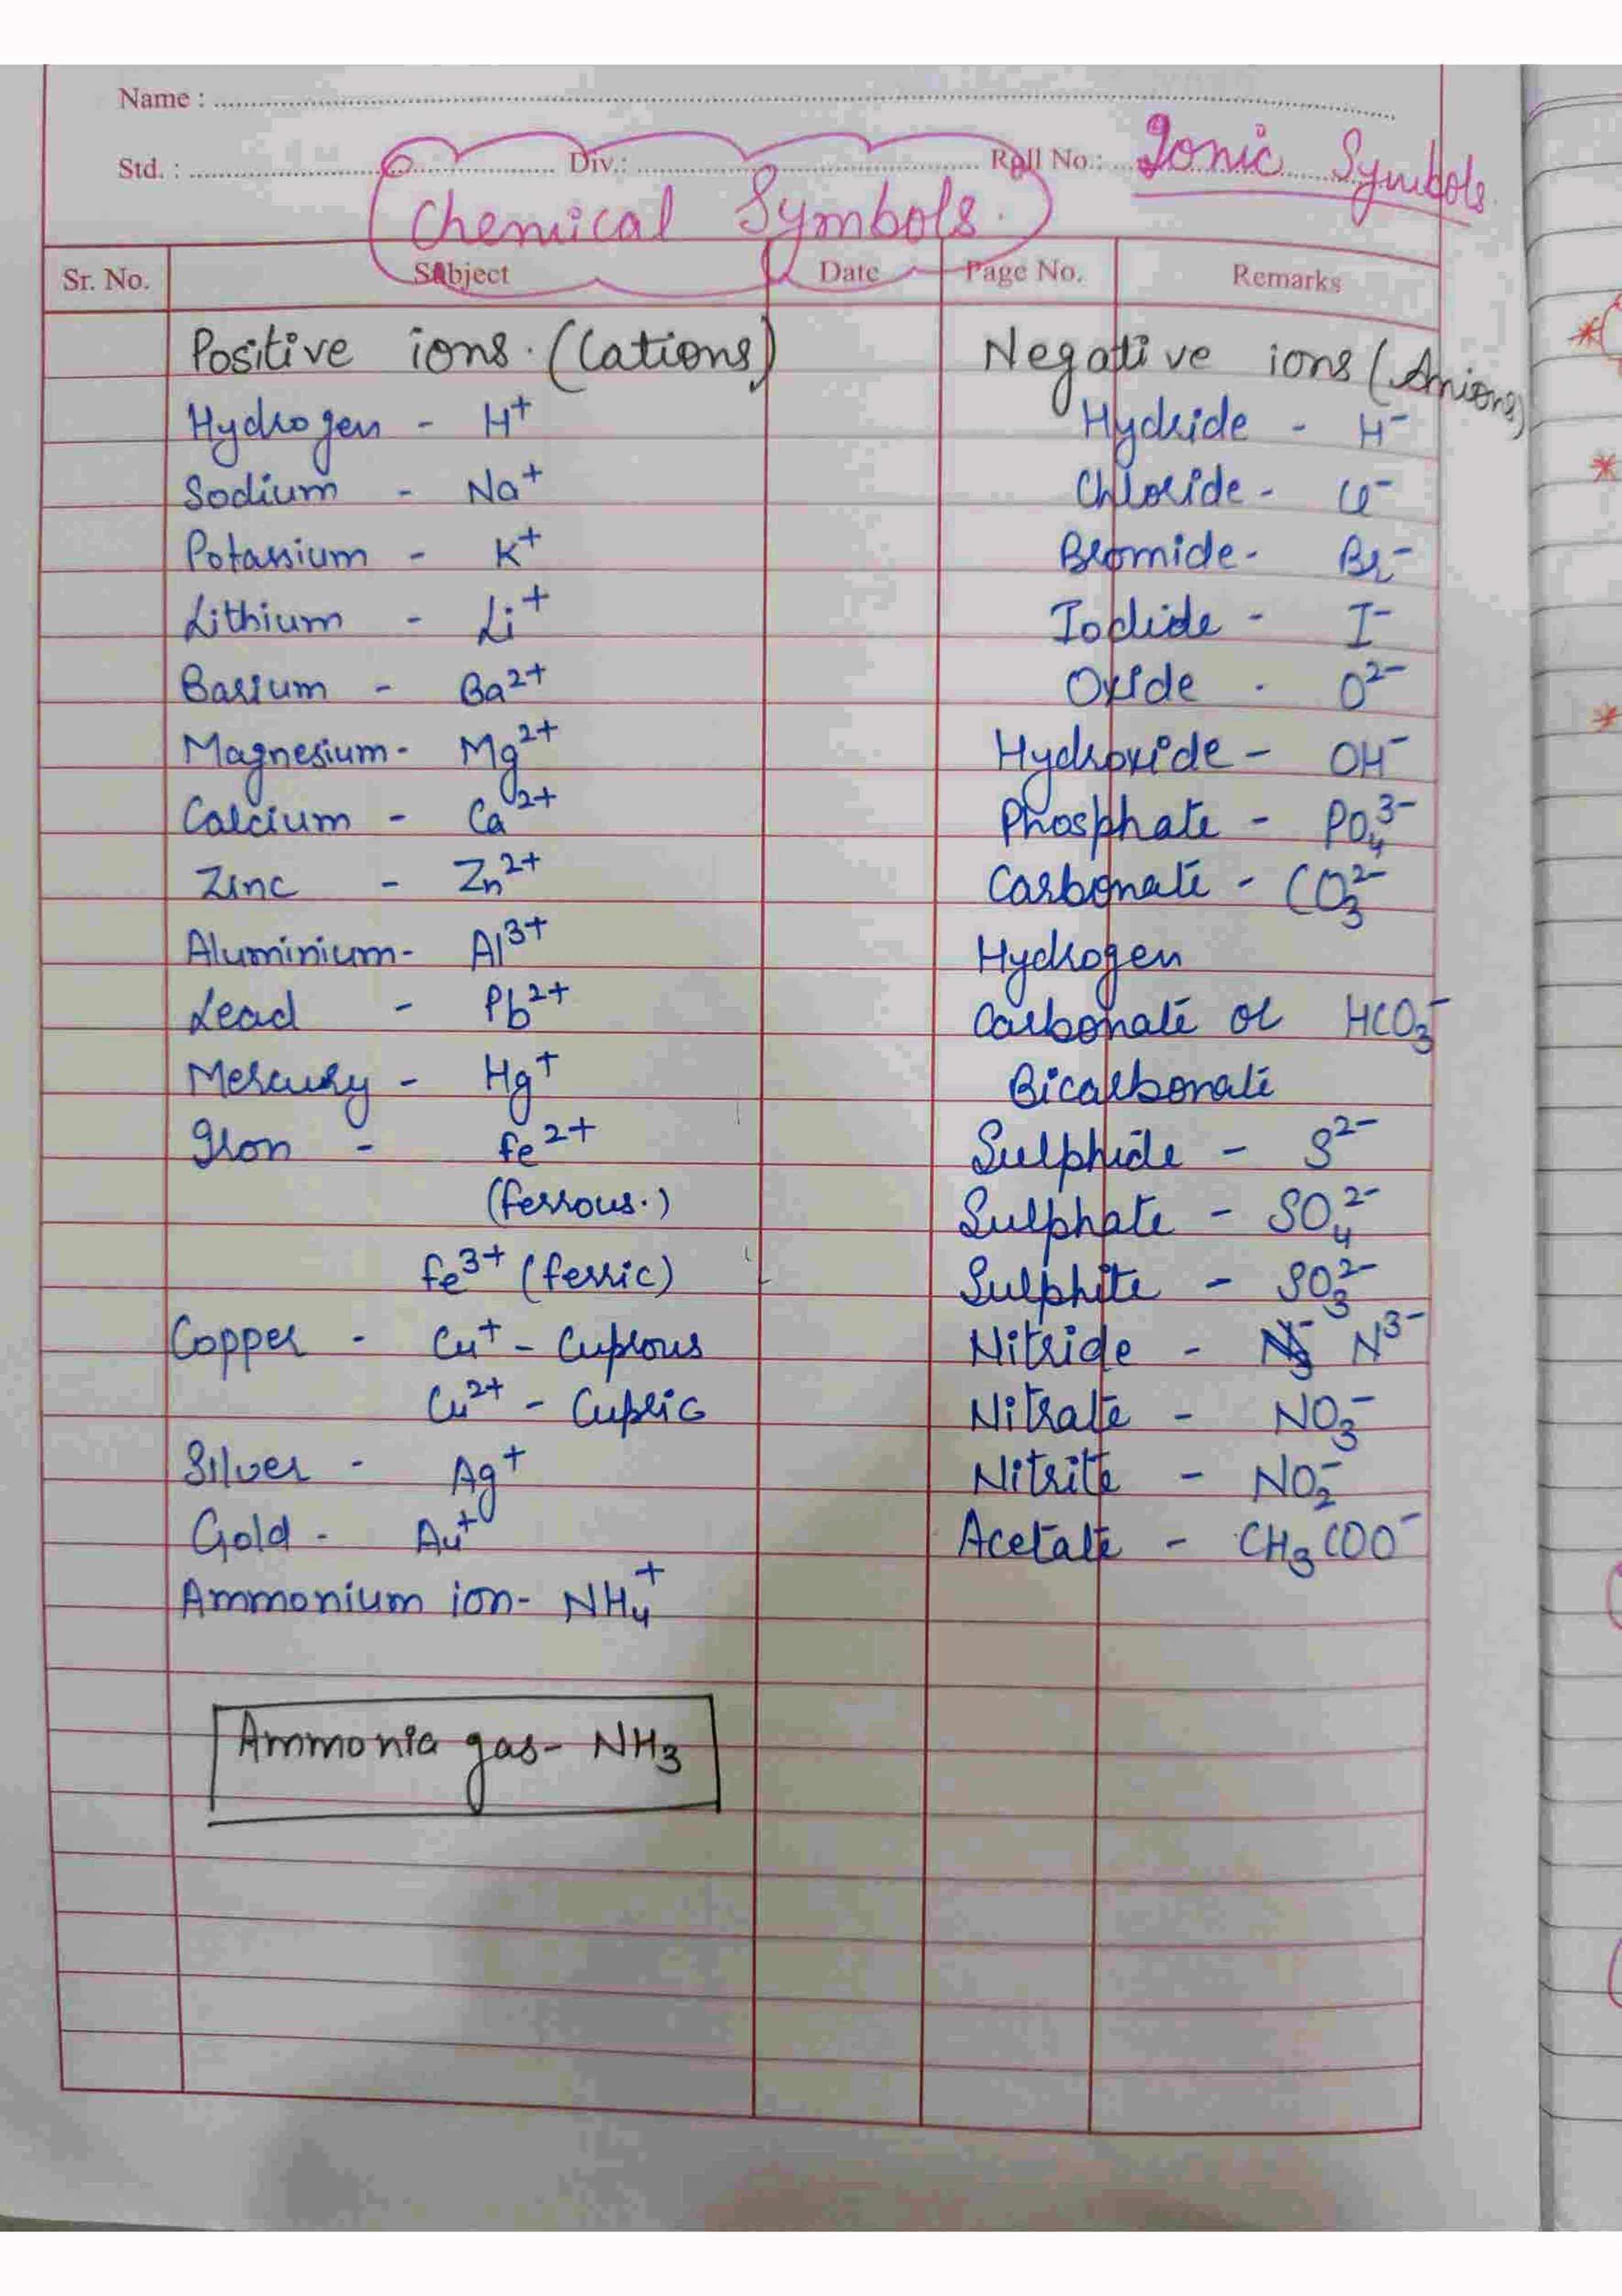 Name :
Std. : Div.: Roll No.: Ionic Symbols
Chemical Symbols.
Sr. No. Subject Date Page No. Remarks
Positive ions. (Cations)
Hydrogen - H⁺
Sodium - Na⁺
Potassium - K⁺
Lithium - Li⁺
Barium - Ba²⁺
Magnesium - Mg²⁺
Calcium - Ca²⁺
Zinc - Zn²⁺
Aluminium - Al³⁺
Lead - Pb²⁺
Mercury - Hg⁺
Iron - Fe²⁺
(ferrous.)
Fe³⁺ (ferric)
Copper - Cu⁺ - Cuprous
Cu²⁺ - Cupric
Silver - Ag⁺
Gold - Au⁺
Ammonium ion - NH₄⁺
Ammonia gas - NH₃
Negative ions (Anions)
Hydride - H⁻
Chloride - Cl⁻
Bromide - Br⁻
Iodide - I⁻
Oxide - O²⁻
Hydroxide - OH⁻
Phosphate - PO₄³⁻
Carbonate - CO₃²⁻
Hydrogen
Carbonate or HCO₃⁻
Bicarbonate
Sulphide - S²⁻
Sulphate - SO₄²⁻
Sulphite - SO₃²⁻
Nitride - N³⁻
Nitrate - NO₃⁻
Nitrite - NO₂⁻
Acetate - CH₃COO⁻